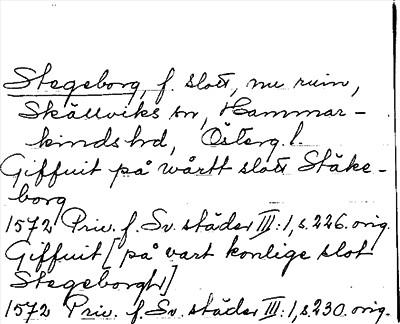 Stegeborg, f. slott, nu ruin,
Skällviks sn, Hammar-
kinds hd, Österg. l.
Giffuit på wårtt slott Stäke-
borg
1572 Priv. f. Sv. städer III:1, s. 226. orig.
Giffuit [på vart konlige slot
Stegeborgh]
1572 Priv. f. Sv. städer III:1, s. 230. orig.